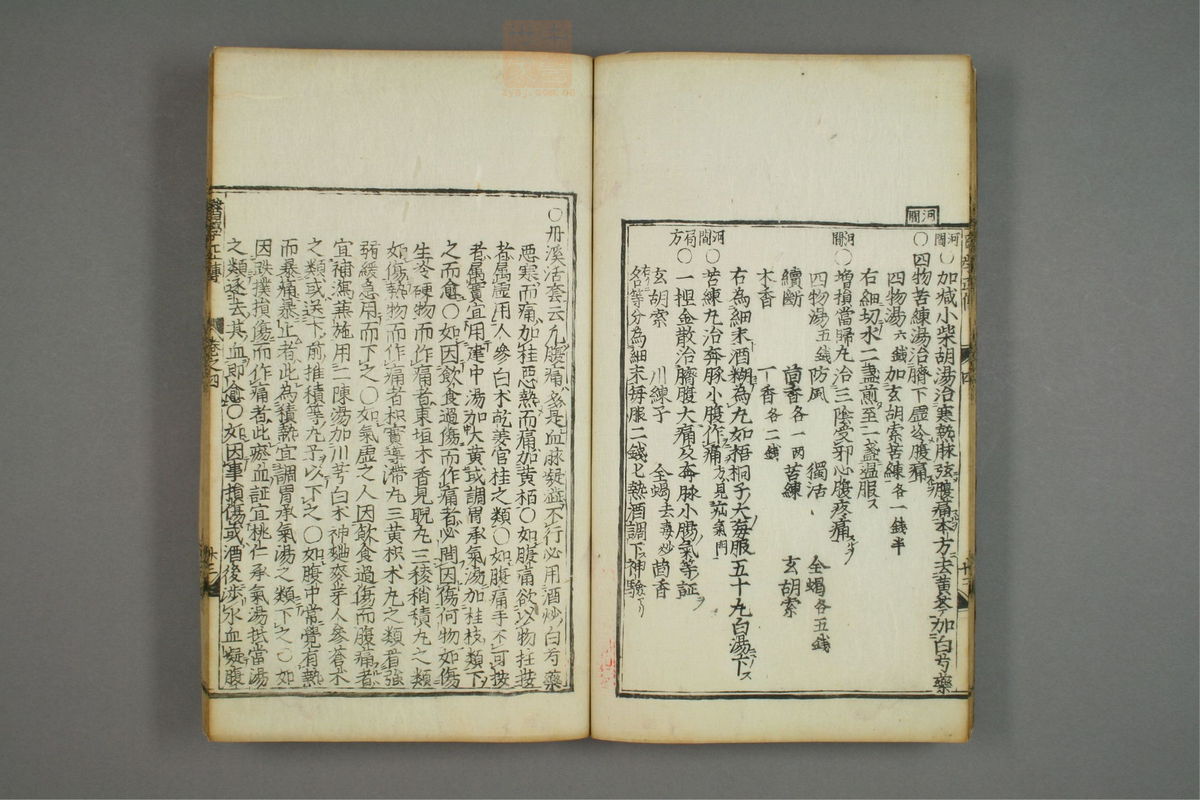 河間
河間○加減小柴胡湯治寒熱脉弦腹痛本方去黄芩加白芍藥
○四物苦練湯治臍下虚冷腹痛
四物湯六錢加玄胡索苦練各一錢半
右細切水二盞煎至一盞温服
河間○増損當歸丸治三陰受邪心腹疼痛
四物湯五錢 防風 獨活 全蝎各五錢
續斷 茴香各一兩 苦練 玄胡索
木香 丁香各二錢
右為細末酒糊為丸如梧桐子大每服五十丸白湯下
河間○苦練丸治奔豚小腹作痛方見疝氣門
局方○一捏金散治臍腹大痛及奔豚小腸氣等証
玄胡索 川練子 全蝎去毒炒 茴香
右等分為細末每服二錢匕熱酒調下神驗
醫學正傳 卷之四
○丹溪活套云凡腹痛多是血脉凝澁不行必用酒炒白芍藥
惡寒而痛加桂惡熱而痛加黄栢○如腹痛欲以物拄按
者属虚用人參白朮乾姜官桂之類○如腹痛手不可按
者属實宜用建中湯加大黄或調胃承氣湯加桂枝類下
之而愈○如因飲食過傷而作痛者必問因傷何物如傷
生冷硬物而作痛者東垣木香見晛丸三稜稍積丸之類
如傷熱物而作痛者枳實導滯丸三黄枳朮丸之類看強
弱緩急用而下之○如氣虚之人因飲食過傷而腹痛者
宜補瀉兼施用二陳湯加川芎白朮神麯麥芽人參蒼朮
之類或送下前推積等丸子以下之○如腹中常覺有熱
而暴痛暴止者此為積熱宜調胃承氣湯之類下之○如
因跌撲損傷而作痛者此瘀血証宜桃仁承氣湯抵當湯
之類逐去其血即愈○如因事損傷或酒後渉水血凝腹